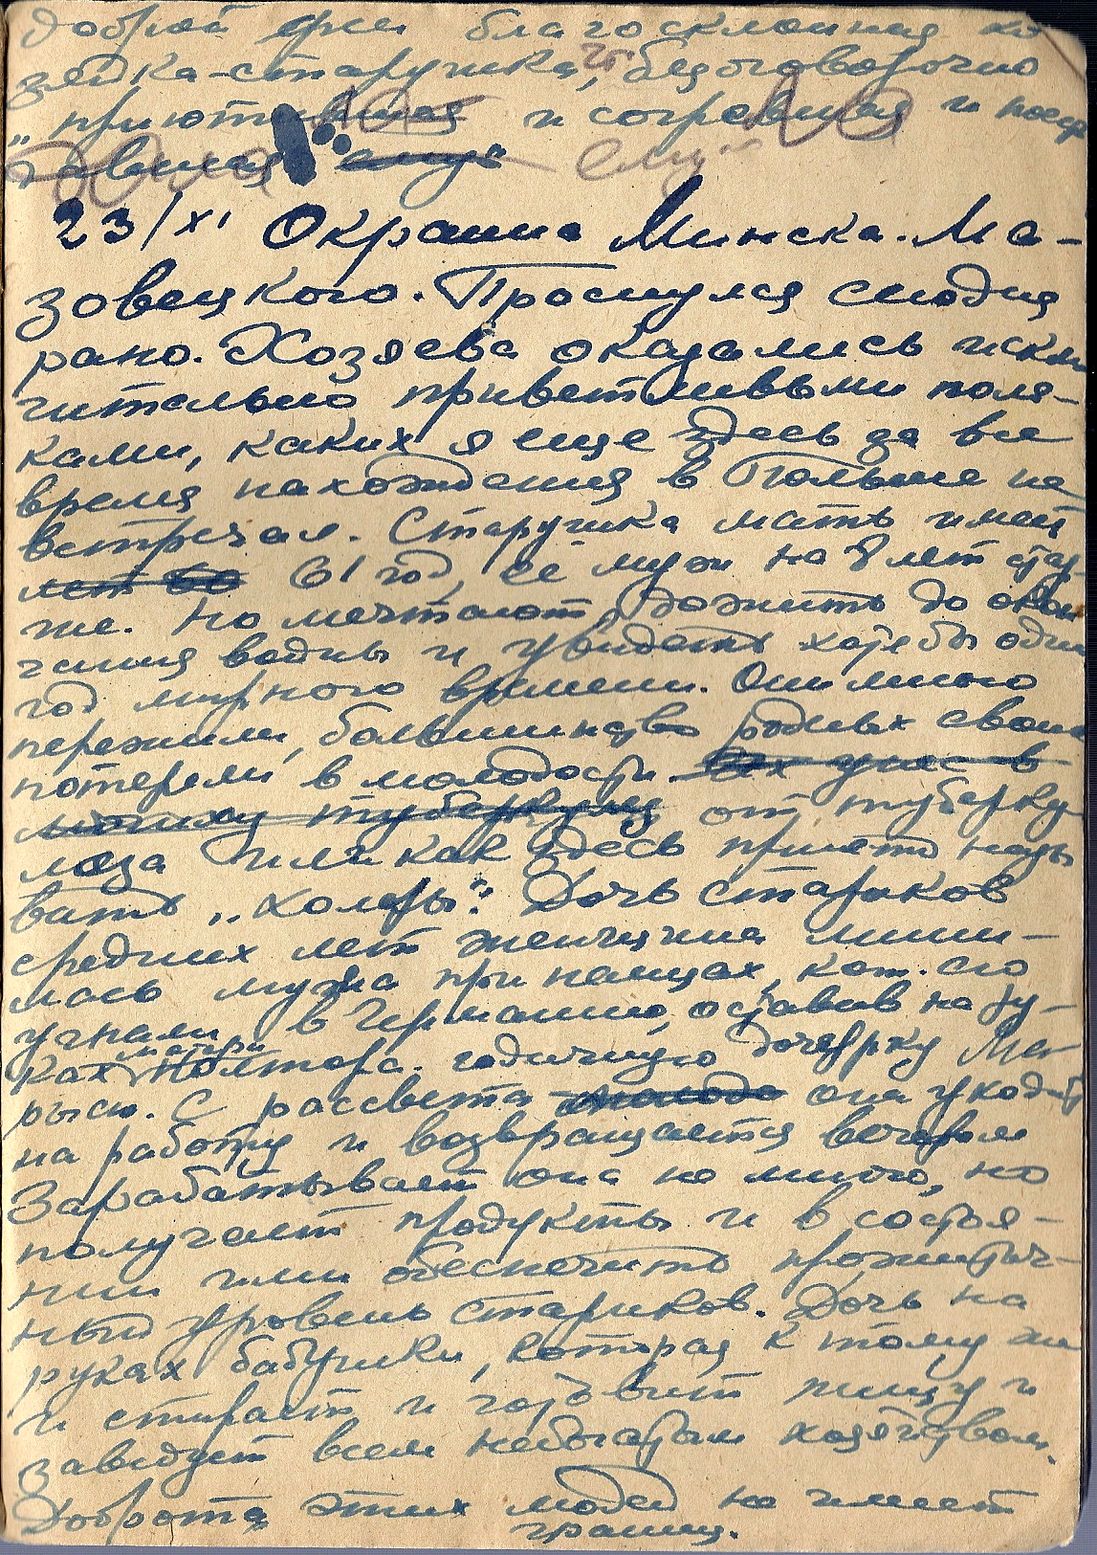 доброй феи благосклонная хо
зяйка-старушка, безоговорочно
„приютившая и согревшая и
ему"
23/XI Окраина Минска-Ма-
зовецкого. Проснулся сегодня
рано. Хозяева оказались исклю
чительно приветливыми поля-
ками, каких я еще здесь за все
время нахождения в Польше не
встречал. Старушка мать имеет
лет 60 61 год, ее муж на 8 лет стар-
же. Но мечтают дожить до окон
чания войны и увидеть хотя бы один
год мирного времени. Они много
пережили, большинство родных своих
потеряли в молодости
от туберку
леза или как здесь принято назы
вать „холеры". Дочь стариков
средних лет женщина лиши-
лась мужа при немцах, кот. его
угнали в Германию, оставив на ру-
ках матери полтора-годичную дочурку Ма-
рысю. С рассвета она уходит
на работу и возвращается вечером
Зарабатывает она не много, но
получает продукты и в состоя-
нии ими обеспечить прожиточ-
ный уровень стариков. Дочь на
руках бабушки, которая к тому же
и стирает и готовит пищу и
заведует всем небогатым хозяйством.
Доброта этих людей не имеет
границ.